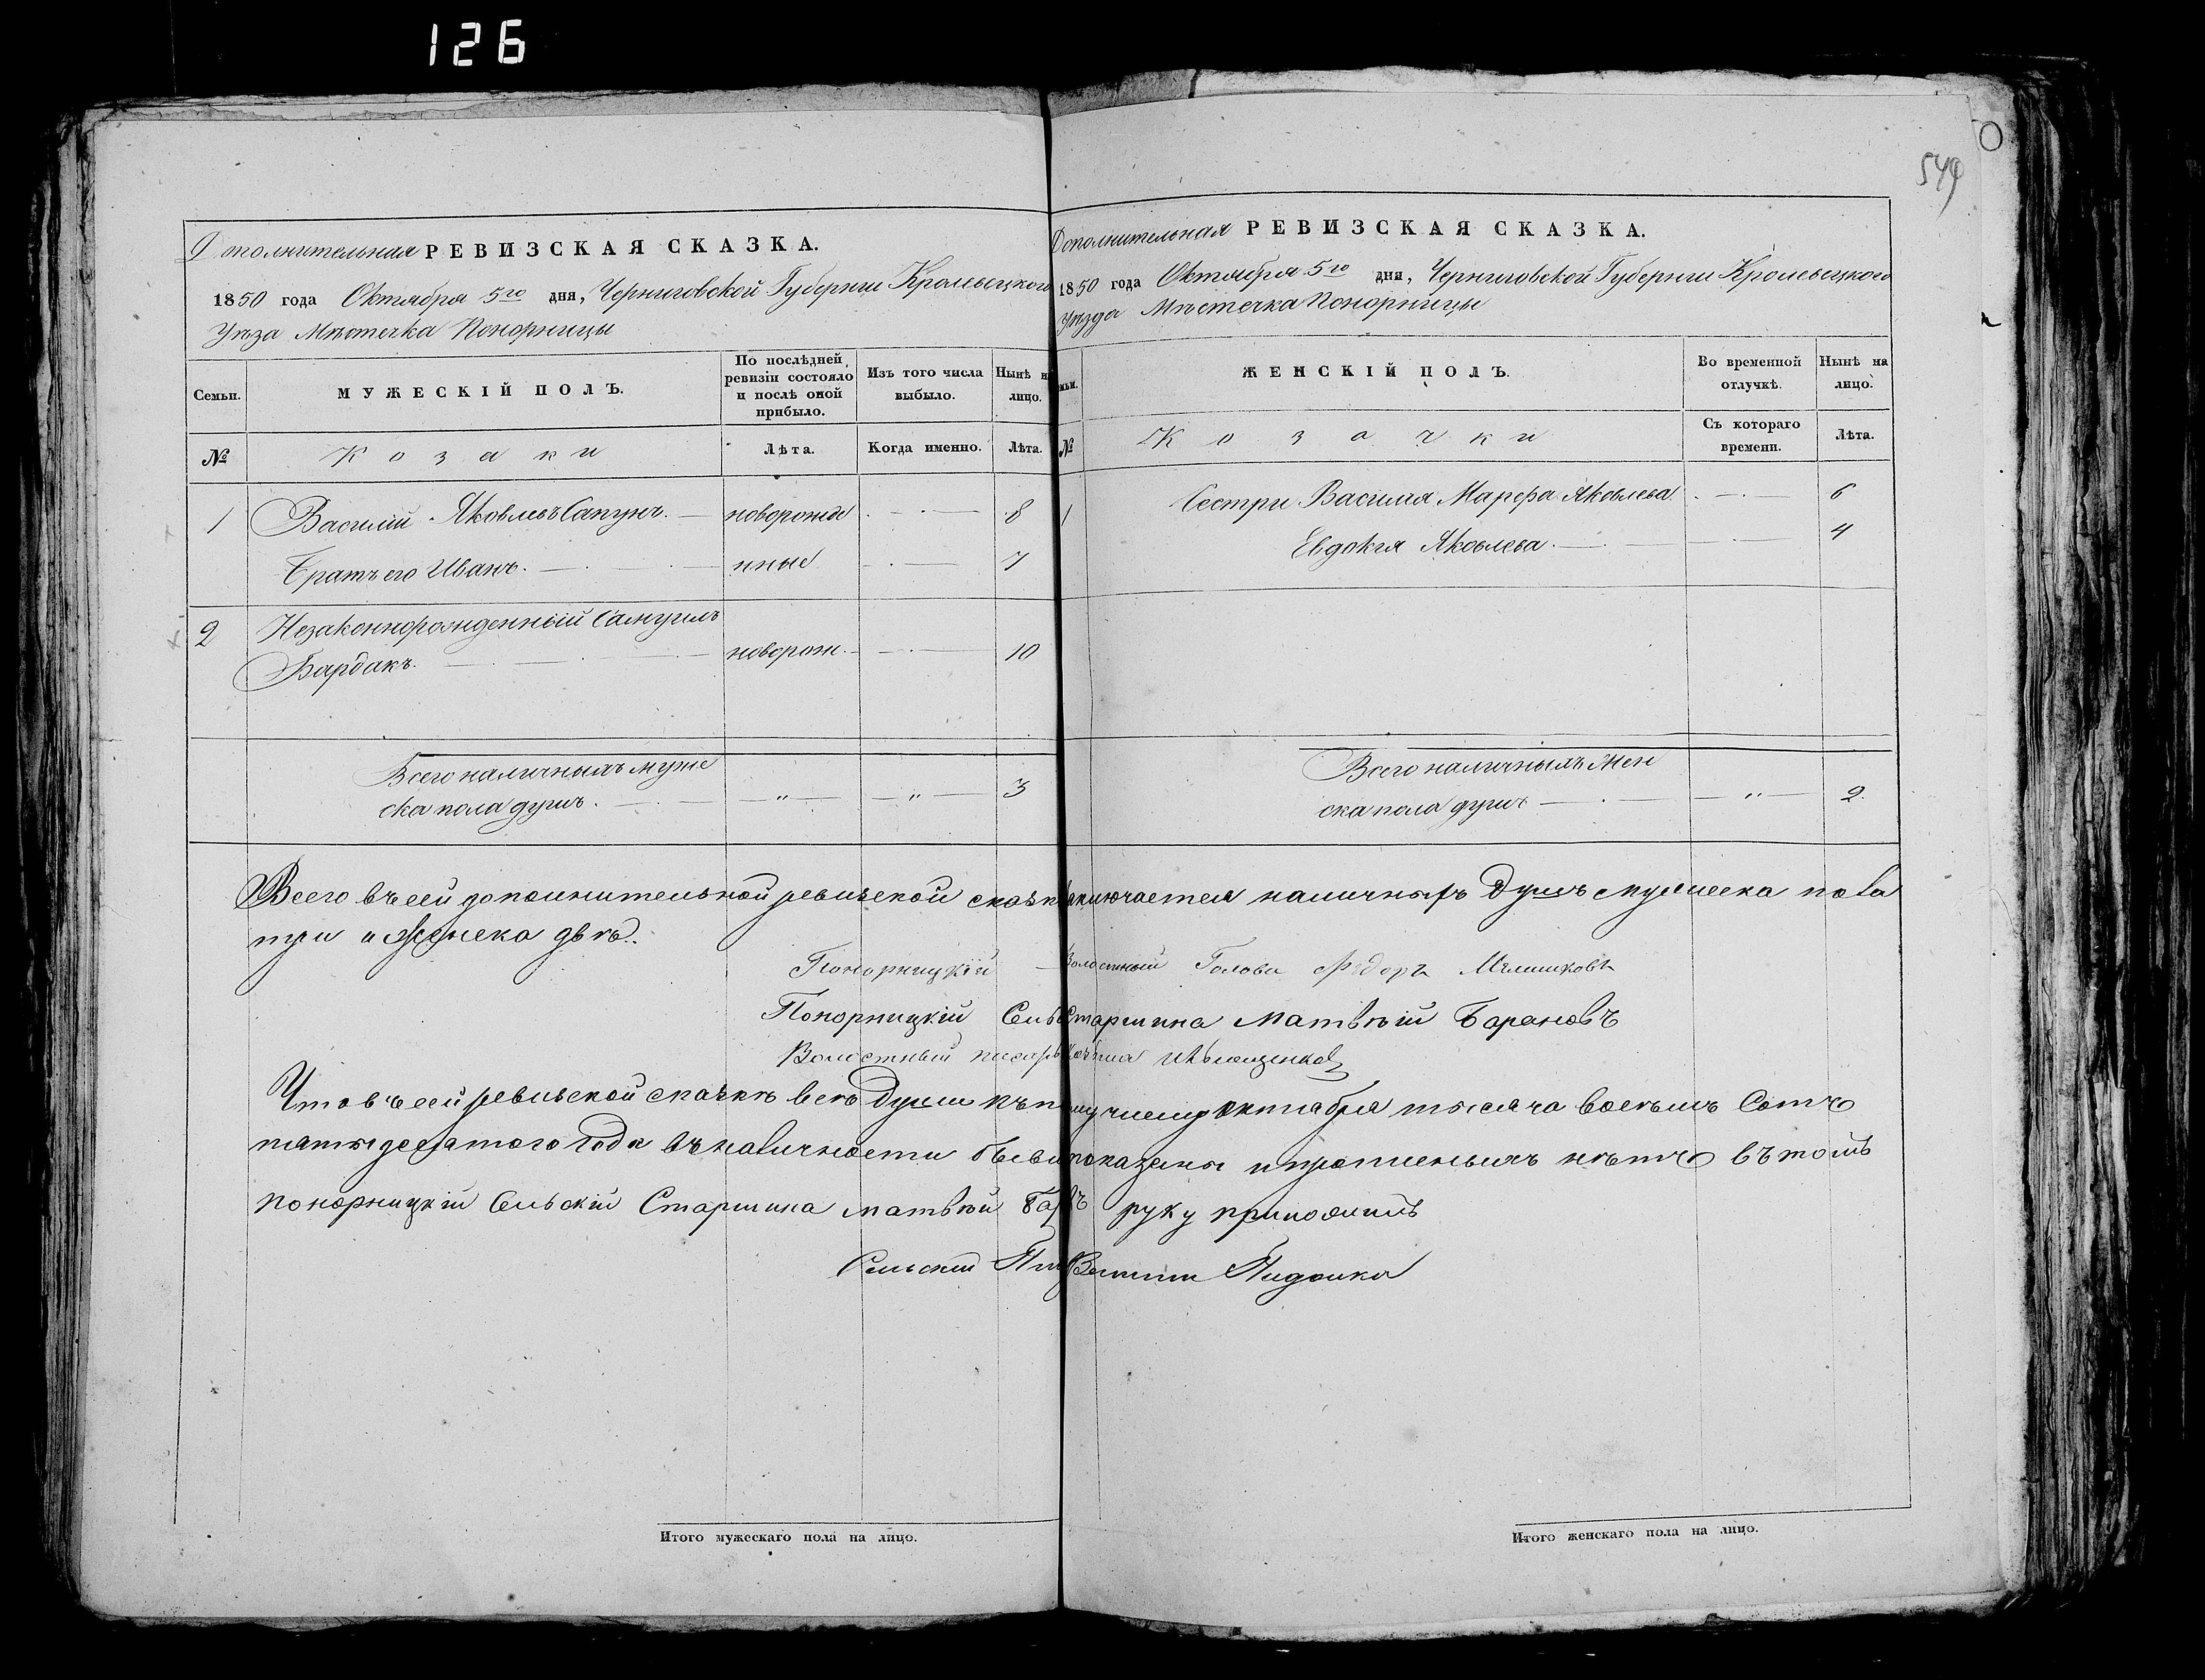 126
549
Дополнительная РЕВИЗСКАЯ СКАЗКА.
1850 года Октября 5го дня, Черниговской Губернги Кролевецкого
Уѣза Мѣстечка Понорницы
Семьи.
МУЖЕСКІЙ ПОЛЪ.
По послѣдней ревизіи состояло и послѣ оной прибыло.
Изъ того числа выбыло.
Нынѣ на лицо.
№
Козаки
Лѣта.
Когда именно.
Лѣта.
1 Василій Яковлевъ Сапунъ. новорожде 8
Братъ его Иванъ. нные 7
2 Незаконнорожденный Самуилъ
Бардакъ. новорож. 10
Всего наличныхъ муже
ска пола душъ. 3
Дополнительная РЕВИЗСКАЯ СКАЗКА.
1850 года Октября 5го дня, Черниговской Губернги Кролевецкого
Уѣзда Мѣстечка Понорницы
ЖЕНСКІЙ ПОЛЪ.
Во временной отлучкѣ.
Нынѣ на лицо.
№
Козачки
Съ котораго времени.
Лѣта.
1 Сестри Василия Марфа Яковлева 6
Евдокия Яковлева. 4
Всего наличныхъ Жен
ска пола душъ 2.
Всего въ сей дополнительной ревизской сказкѣ заключается наличныхъ душъ мужеска пола
три и женска двѣ.
Понорницкій Волостный Голова Федоръ
Понорницкій Сельс Старшина Матвѣй Барановъ
Волостный писарь
Что въ сей ревизской сказкѣ всѣ души къ октабря тысяча восемъ сотъ
пятьдесятого года въ наличности показаны и нѣтъ въ томъ
понорницкій Сельскій Старшина матвѣй руку приложилъ
Сельский
Итого мужескаго пола на лицо.
Итого женскаго пола на лицо.